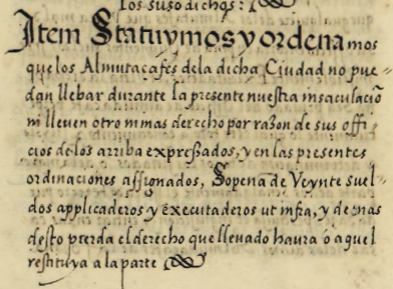 los suso dichos:
Item Statuymos y ordenamos
que los Almutaçafes de la dicha Ciudad no pue-
dan llebar durante la presente nuestra insaculaciõ
ni lleuen otro ni mas derecho por razon de sus offi-
cios de los arriba expreßados, y en las presentes
ordinaciones assignados, Sopena de Veynte suel-
dos applicaderos y executaderos ut infra, y de mas
desto pierda el derecho que lleuado haura o aquel
restituya a la parte